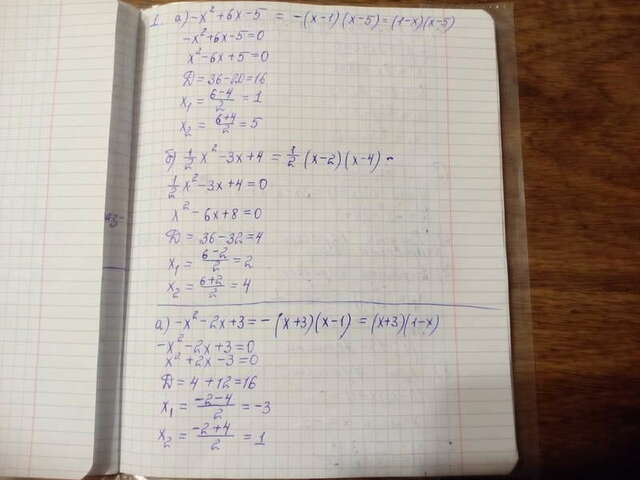 1. а) -x² + 6x - 5 = -(x-1)(x-5) = (1-x)(x-5)
-x² + 6x - 5 = 0
x² - 6x + 5 = 0
Д = 36 - 20 = 16
x₁ = (6-4)/2 = 1
x₂ = (6+4)/2 = 5
б) 1/2 x² - 3x + 4 = 1/2 (x-2)(x-4)
1/2 x² - 3x + 4 = 0
x² - 6x + 8 = 0
Д = 36 - 32 = 4
x₁ = (6-2)/2 = 2
x₂ = (6+2)/2 = 4
а) -x² - 2x + 3 = -(x+3)(x-1) = (x+3)(1-x)
-x² - 2x + 3 = 0
x² + 2x - 3 = 0
Д = 4 + 12 = 16
x₁ = (-2-4)/2 = -3
x₂ = (-2+4)/2 = 1